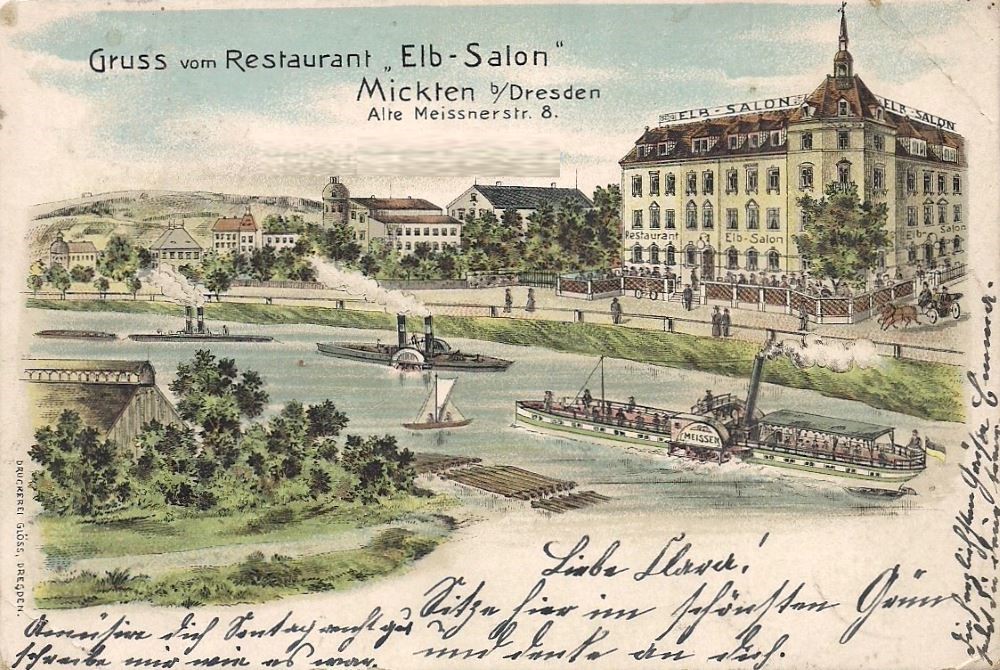 Gruss vom Restaurant „Elb-Salon“
Mickten b/Dresden
Alte Meissnerstr. 8.
ELB-SALON
ELB-SALON
Restaurant Elb-Salon
Elb-Salon
MEISSEN
DRUCKEREI GLÖSS, DRESDEN.
Liebe Clara!
Sitze hier im schönsten Grün
und denke an dich.
Amüsire dich Sontag recht gut
schreibe mir wie es war.